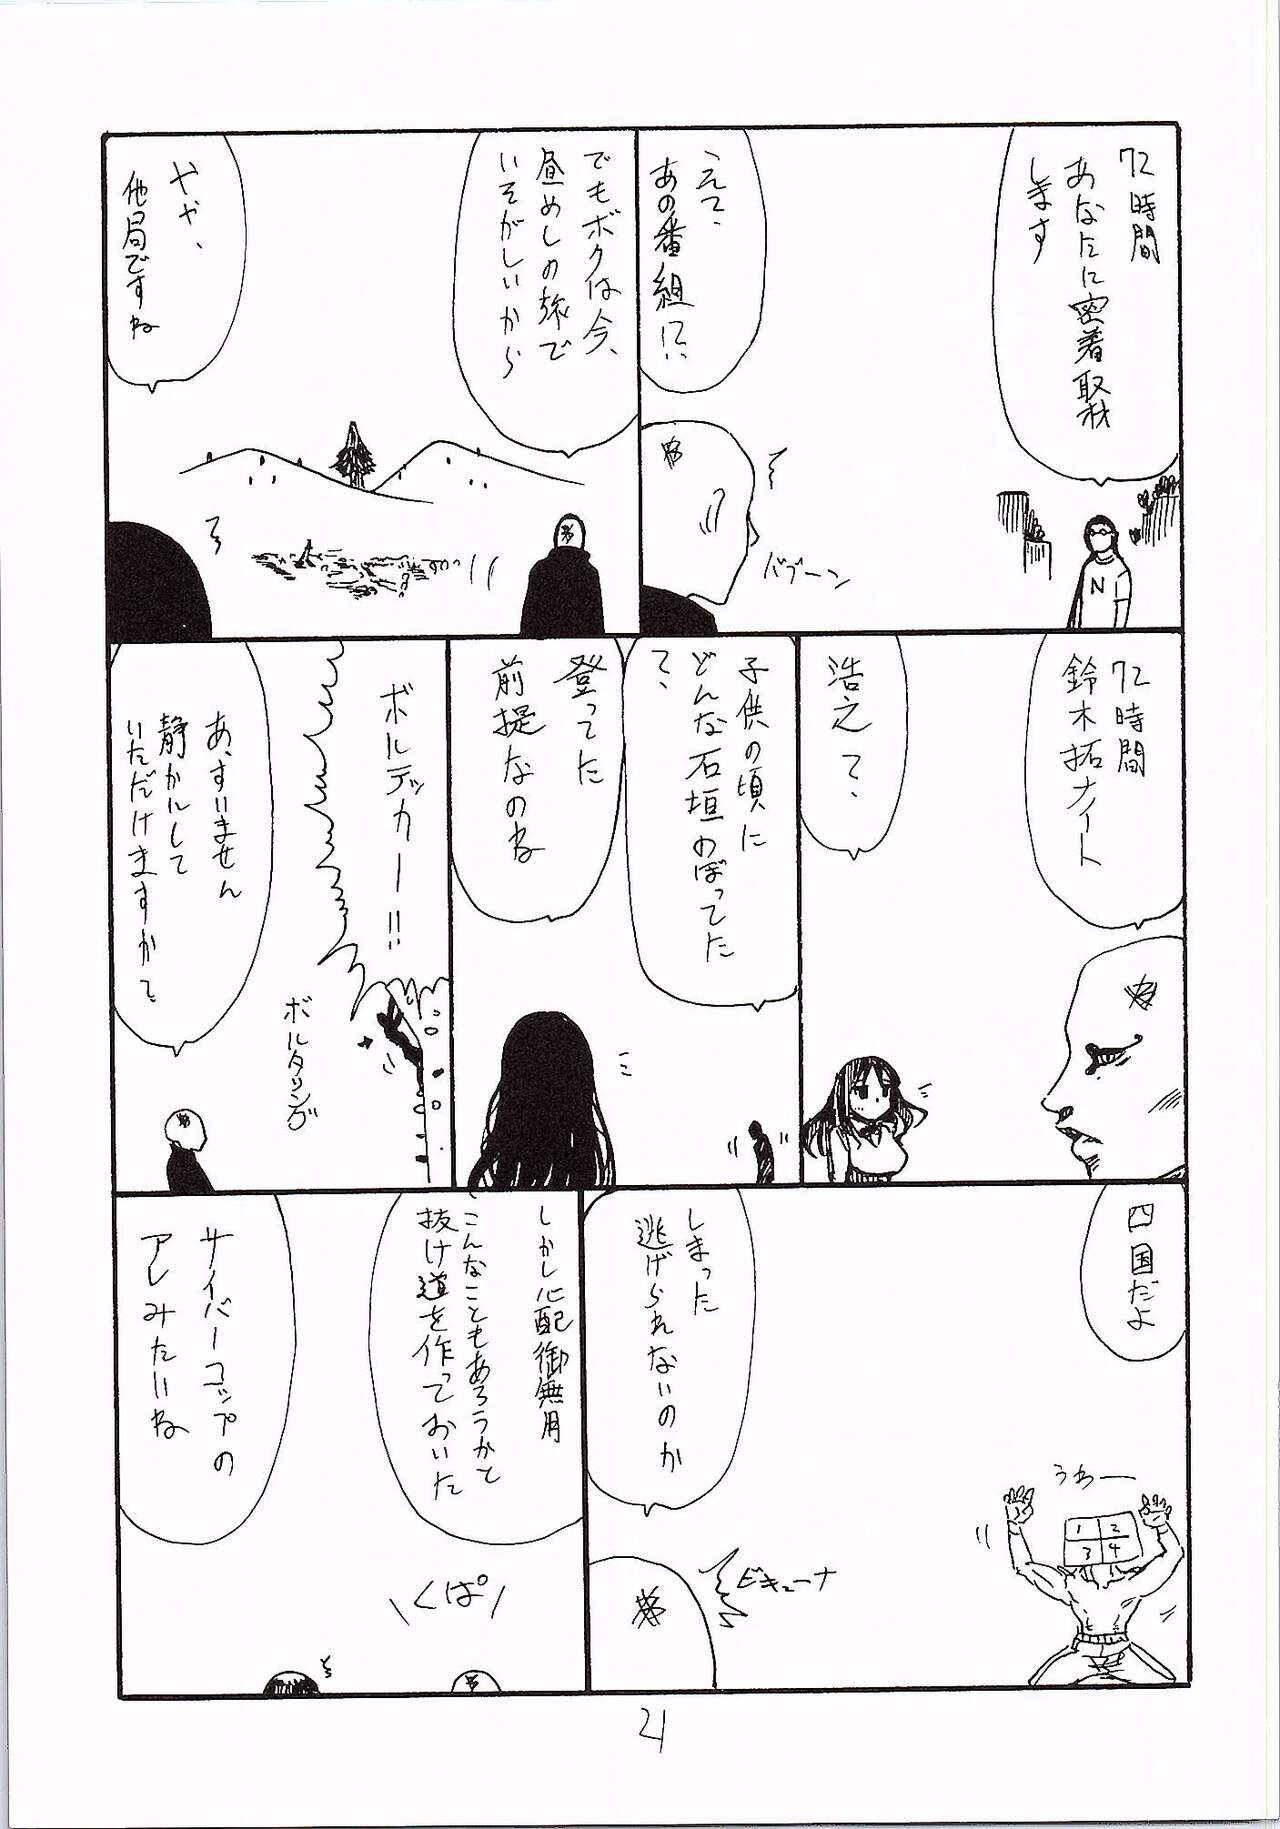 72時間
あなたに密着取材
します
えて、
あの番組!?
バブーン
N
でもボクは今、
昼めしの旅で
いそがしいから
やや、
他局ですね
72時間
鈴木拓ナイト
浩之て、
子供の頃に
どんな石垣のぼってた
て、
登ってた
前提なのね
ボルデッカー!!
ボルタリング
あ、すいません
静かルして
いただけますかて、
四国だよ
うわー
1 2
3 4
しまった
逃げられないのか
ビキューナ
しかし心配御無用
こんなこともあろうかと
抜け道を作っておいた
くぱ
サイバーコップの
アレみたいね
21